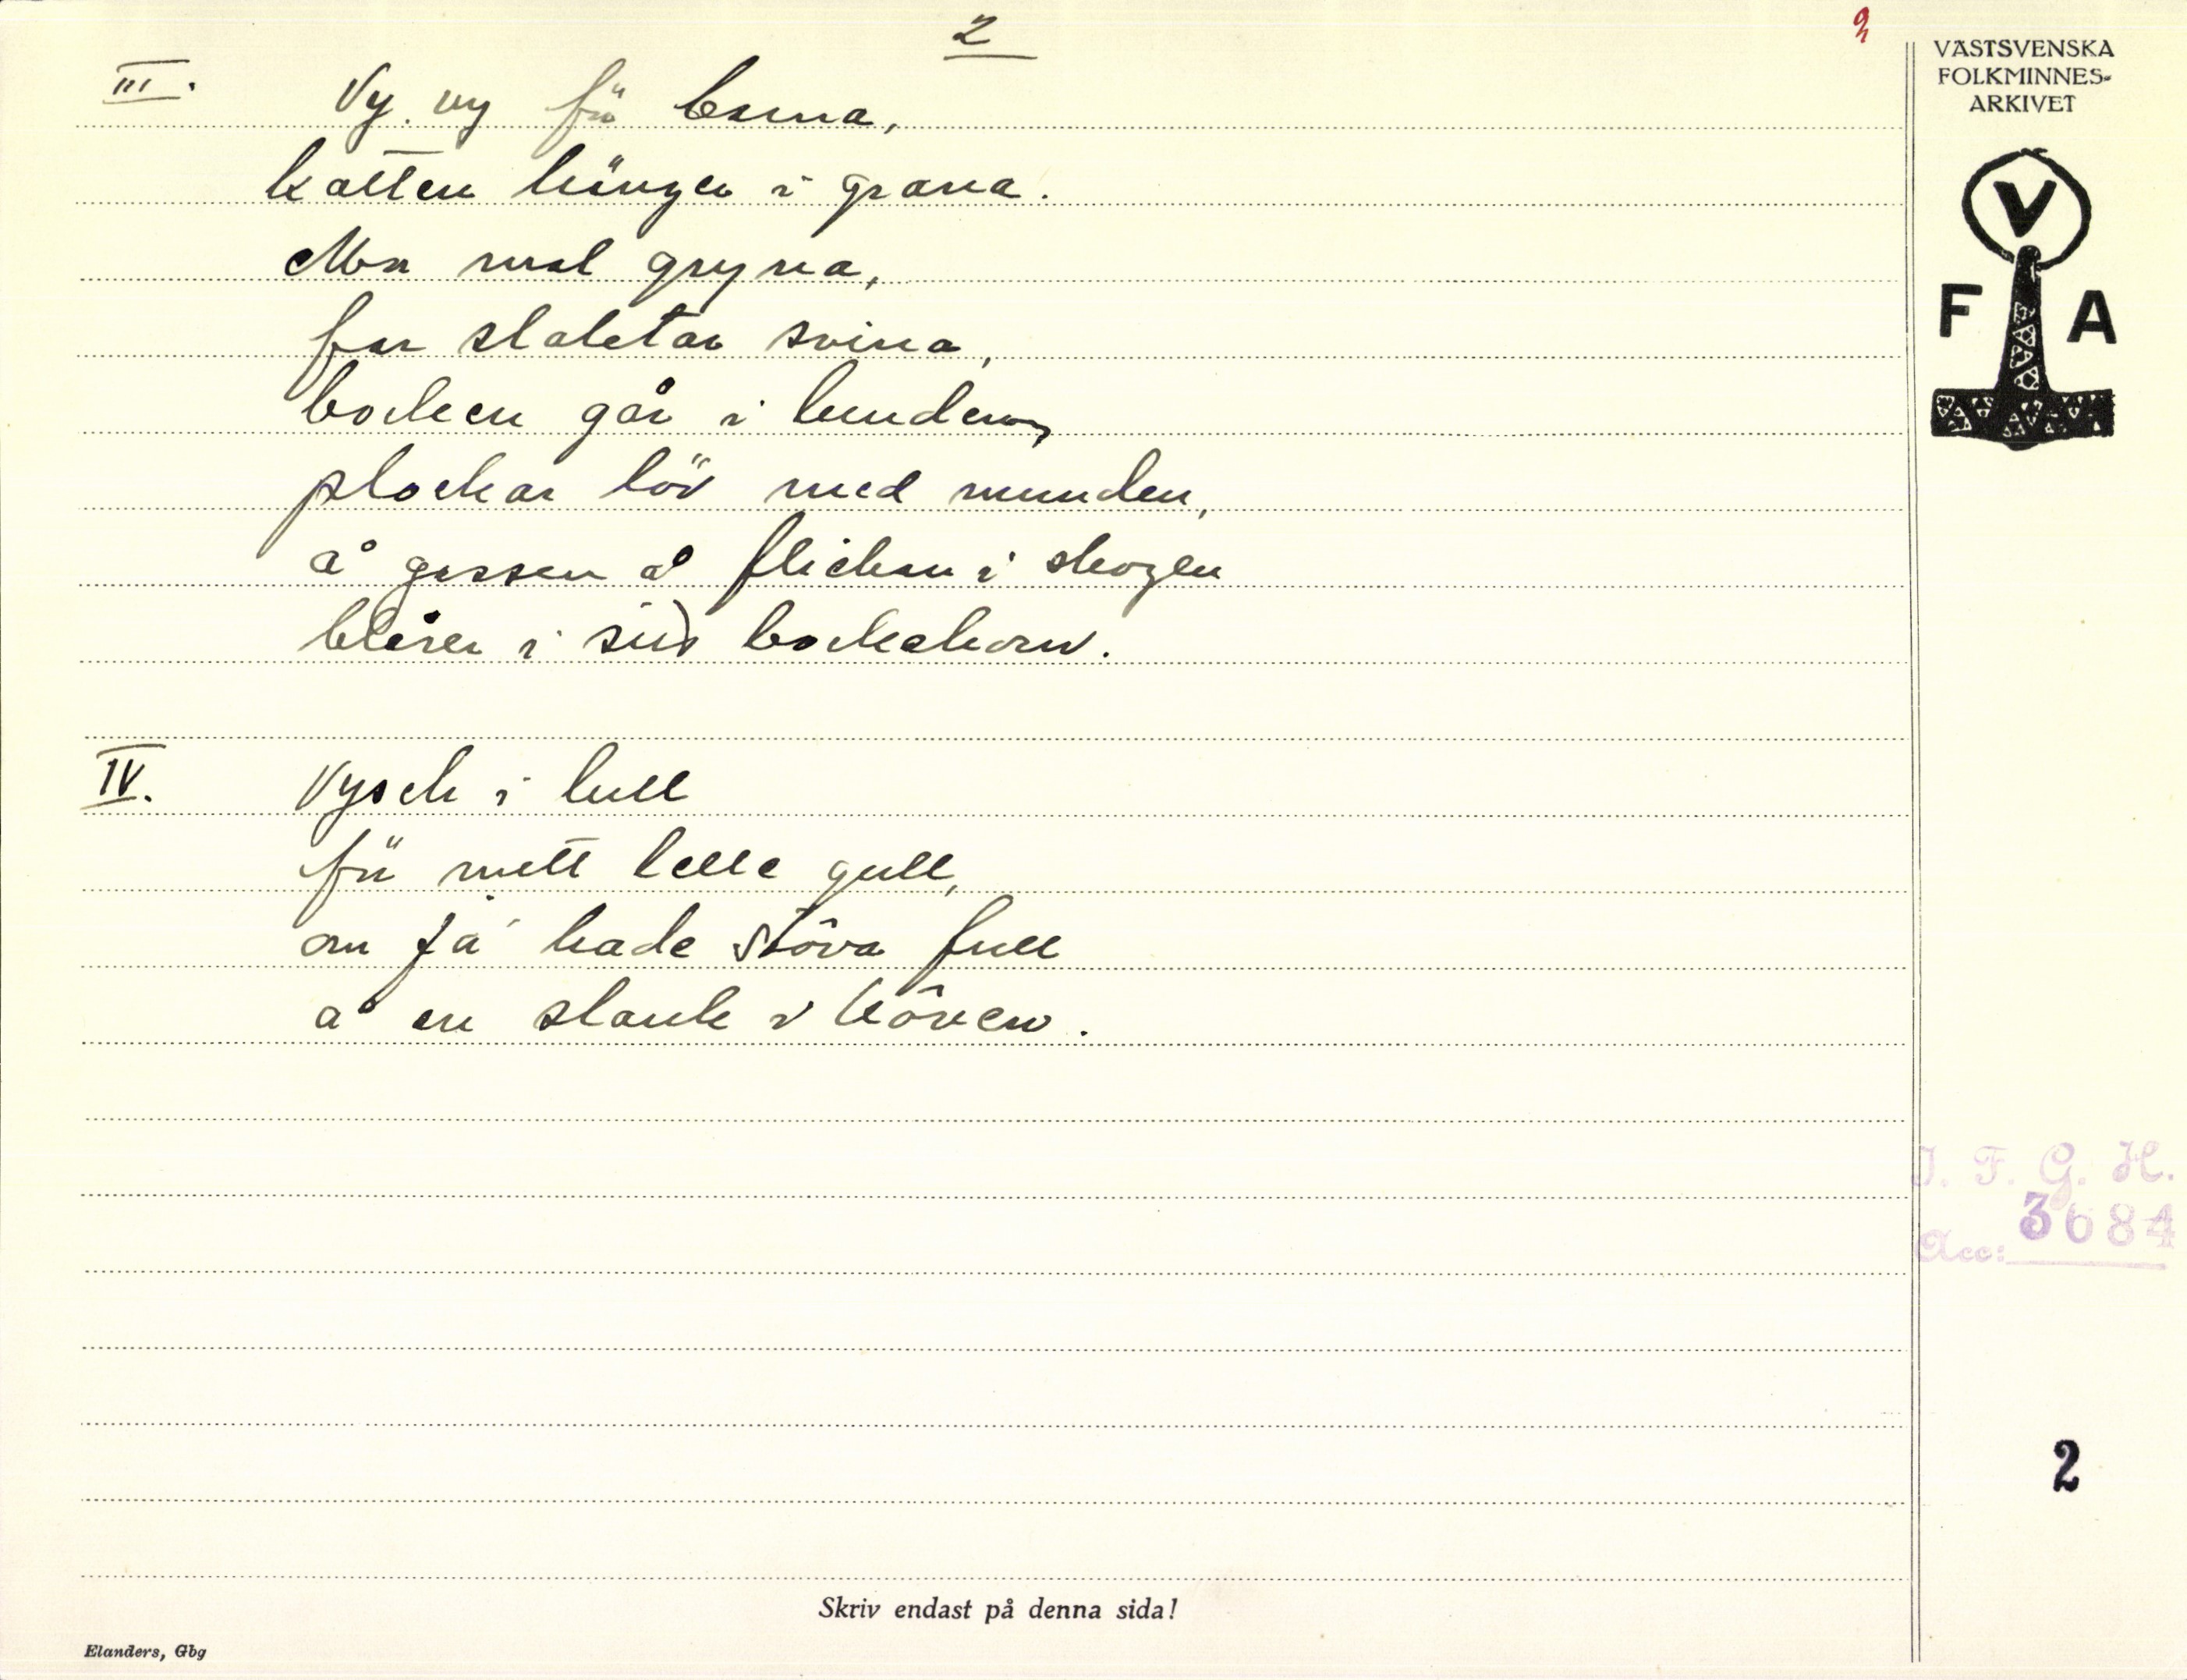 2
2
VÄSTSVENSKA
FOLKMINNES-
ARKIVET
V
F A
III. Vy. vy fü barna,
katten hänger i grana.
Mor mal gryna,
far slaktar svina,
bocken går i lunden,
plockar löv med munden,
å gossen å flickan i skogen
blåser i sitt bockehorn.
IV. Vysch i lull
fü mett lelle gull,
om ja hade stôva full
å en slank i kôven.
I. F. G. H.
Acc: 3684
2
Skriv endast på denna sida!
Elanders, Gbg